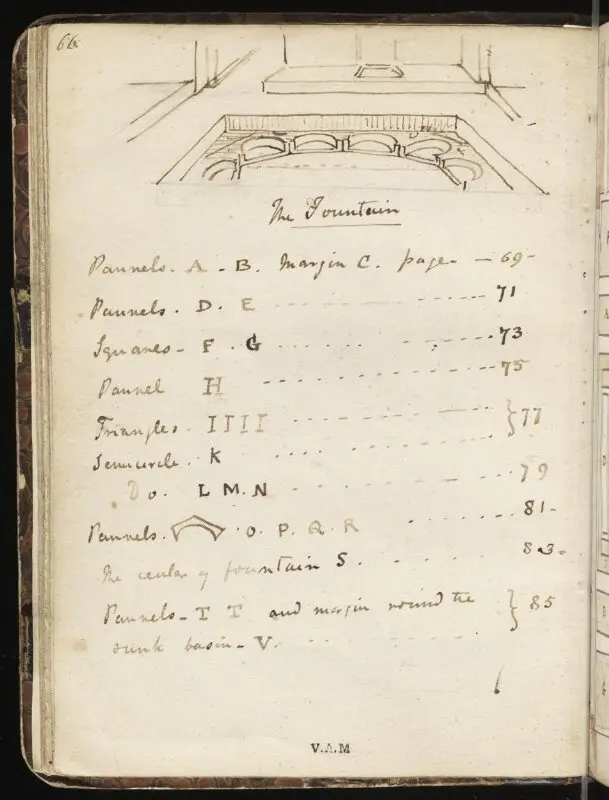 66
The Fountain
Pannels. A - B. Margin C. page - 69 -
Pannels. D. E - - - - 71
Squares - F. G - - - - 73
Pannel H - - - - 75
Triangles. I I I I - - - - } 77
Semicircle. K - - - -
Do. L M. N - - - - 79
Pannels. O. P. Q. R - - - - 81 -
The center of fountain S. - - - - 83 -
Pannels - T T and margin round the } 85
sunk basin - V. - - - -
V.A.M